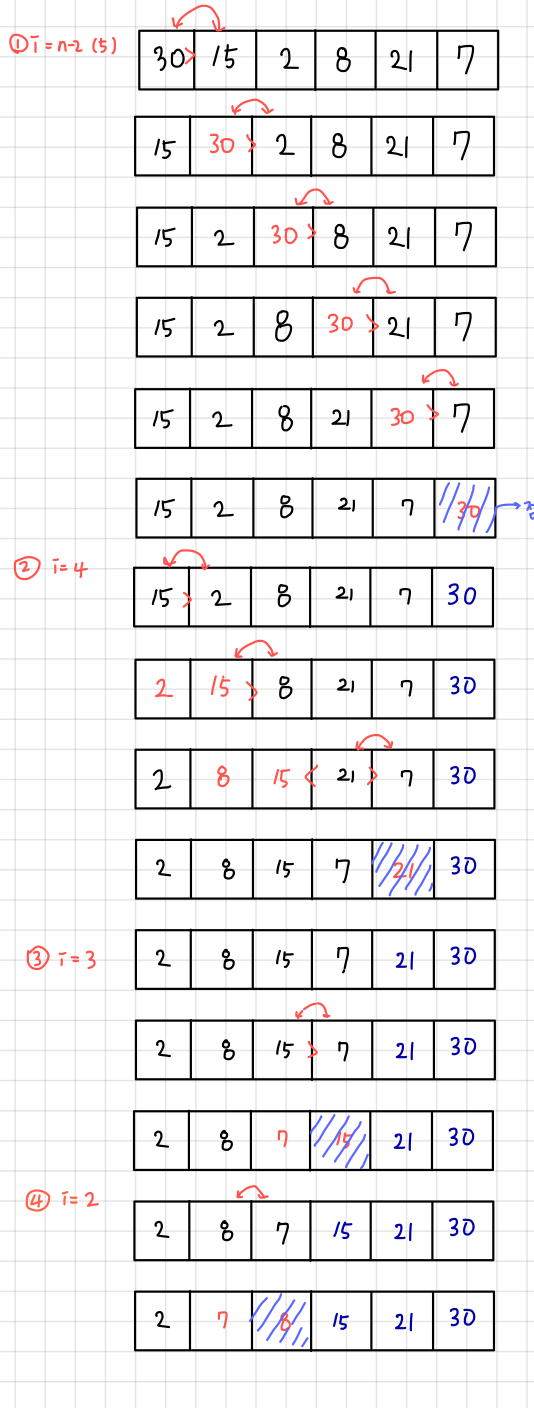 ① i = n-2 (5) 30 > 15 2 8 21 7
15 30 > 2 8 21 7
15 2 30 > 8 21 7
15 2 8 30 > 21 7
15 2 8 21 30 > 7
15 2 8 21 7 30
② i = 4 15 > 2 8 21 7 30
2 15 > 8 21 7 30
2 8 15 < 21 > 7 30
2 8 15 7 21 30
③ i = 3 2 8 15 7 21 30
2 8 15 > 7 21 30
2 8 7 15 21 30
④ i = 2 2 8 7 15 21 30
2 7 8 15 21 30